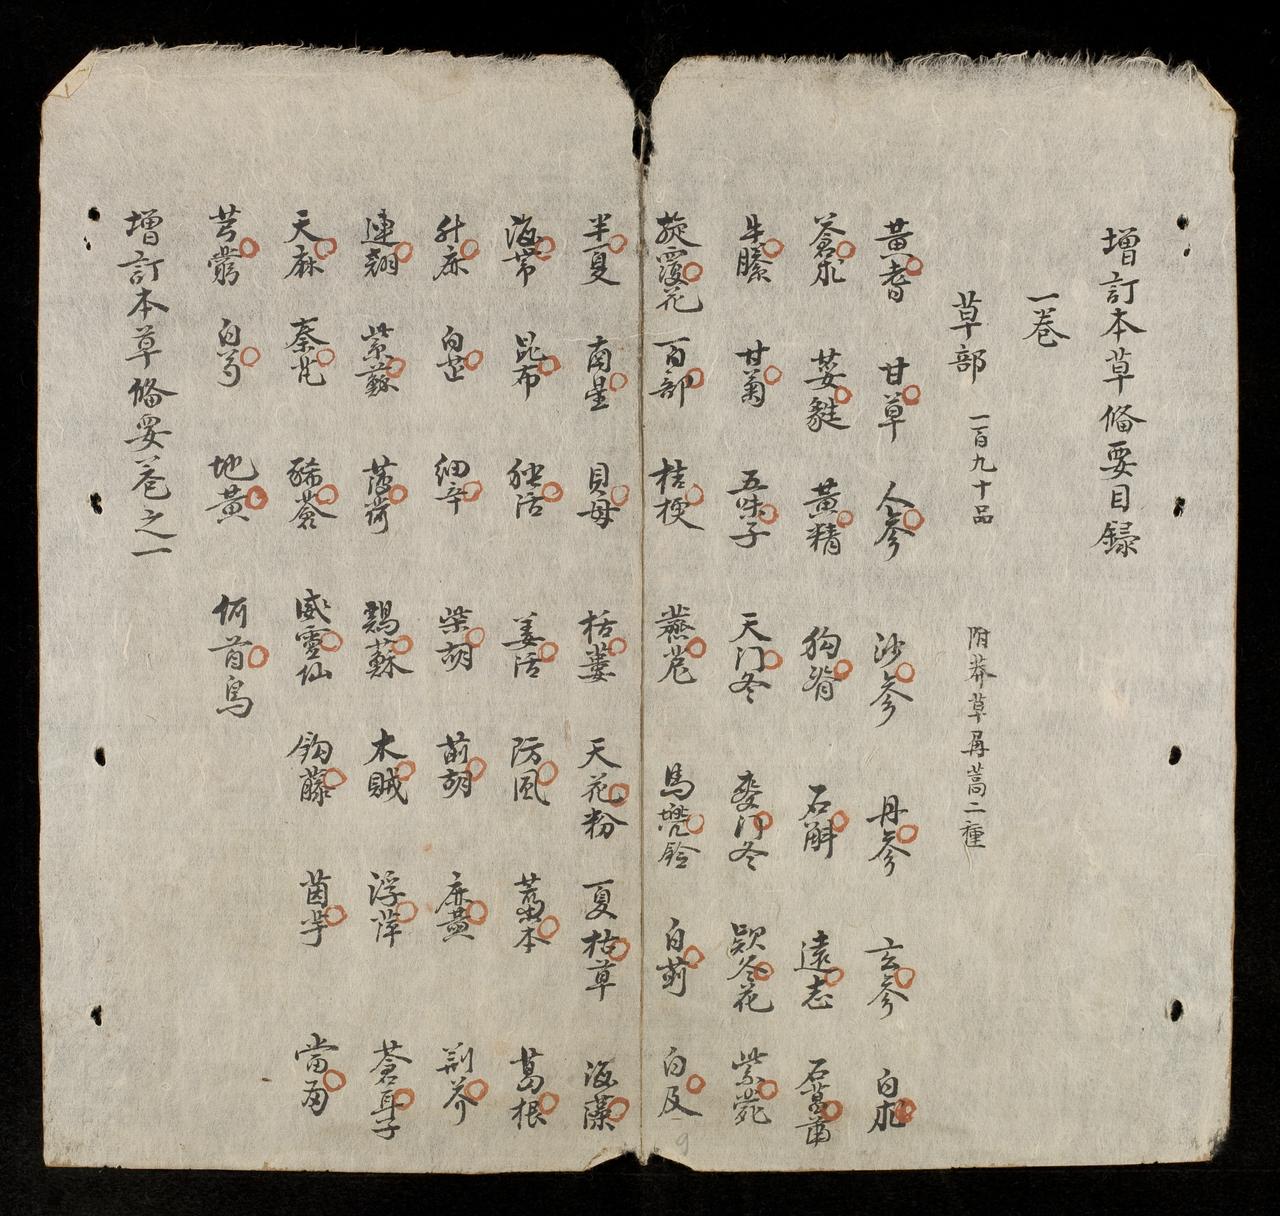 增訂本草俻要目録
一巻
草部 一百九十品 附莽草再蒿二種
黃耆 甘草 人參 沙參 丹參 玄參 白朮
蒼朮 萎蕤 黃精 狗脊 石斛 遠志 石菖蒲
牛膝 甘菊 五味子 天门冬 麥门冬 欵冬花 紫菀
旋覆花 百部 桔梗 馬兜鈴 白前 白及
半夏 南星 貝母 栝蔞 天花粉 夏枯草 海藻
海帶 昆布 独活 羌活 防風 藁本 葛根
升麻 白芷 細辛 柴胡 前胡 麻黃 荆芥
連翹 紫蘇 薄荷 鷄蘇 木賊 浮萍 蒼耳子
天麻 秦艽 豨薟 威靈仙 鈎藤 茵芋 當歸
芎藭 白芍 地黃 何首烏
增訂本草俻要巻之一
9